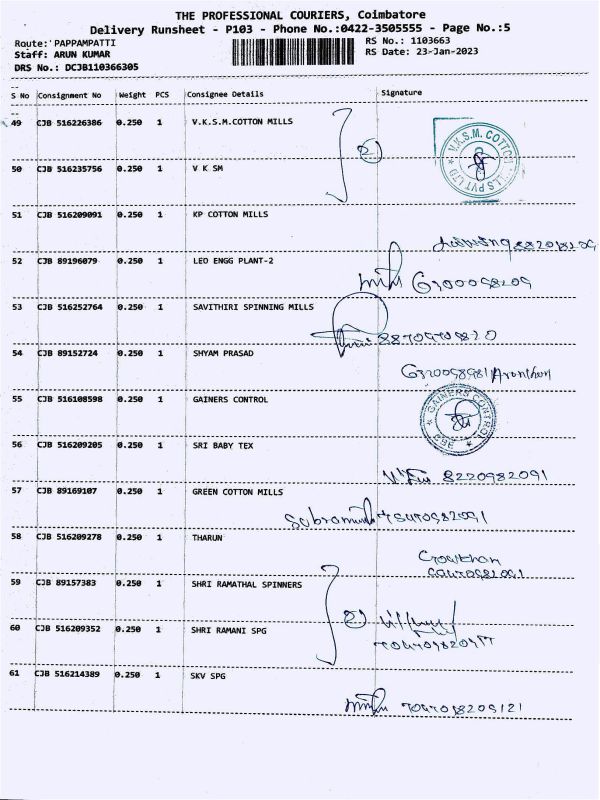 THE PROFESSIONAL COURIERS, Coimbatore
Delivery Runsheet - P103 - Phone No.:0422-3505555 - Page No.:5
Route: PAPPAMPATTI RS No.: 1103663
Staff: ARUN KUMAR RS Date: 23-Jan-2023
DRS No.: DCJB110366305
S No Consignment No Weight PCS Consignee Details Signature
49 CJB 516226386 0.250 1 V.K.S.M.COTTON MILLS
V.K.S.M. COTTON
PVT LTD
2
50 CJB 516235756 0.250 1 V K SM
51 CJB 516209091 0.250 1 KP COTTON MILLS
52 CJB 89196079 0.250 1 LEO ENGG PLANT-2
53 CJB 516252764 0.250 1 SAVITHIRI SPINNING MILLS
54 CJB 89152724 0.250 1 SHYAM PRASAD
55 CJB 516108598 0.250 1 GAINERS CONTROL
GAINERS CONTROL
56 CJB 516209205 0.250 1 SRI BABY TEX
8220982091
57 CJB 89169107 0.250 1 GREEN COTTON MILLS
58 CJB 516209278 0.250 1 THARUN
59 CJB 89157383 0.250 1 SHRI RAMATHAL SPINNERS
2
60 CJB 516209352 0.250 1 SHRI RAMANI SPG
61 CJB 516214389 0.250 1 SKV SPG